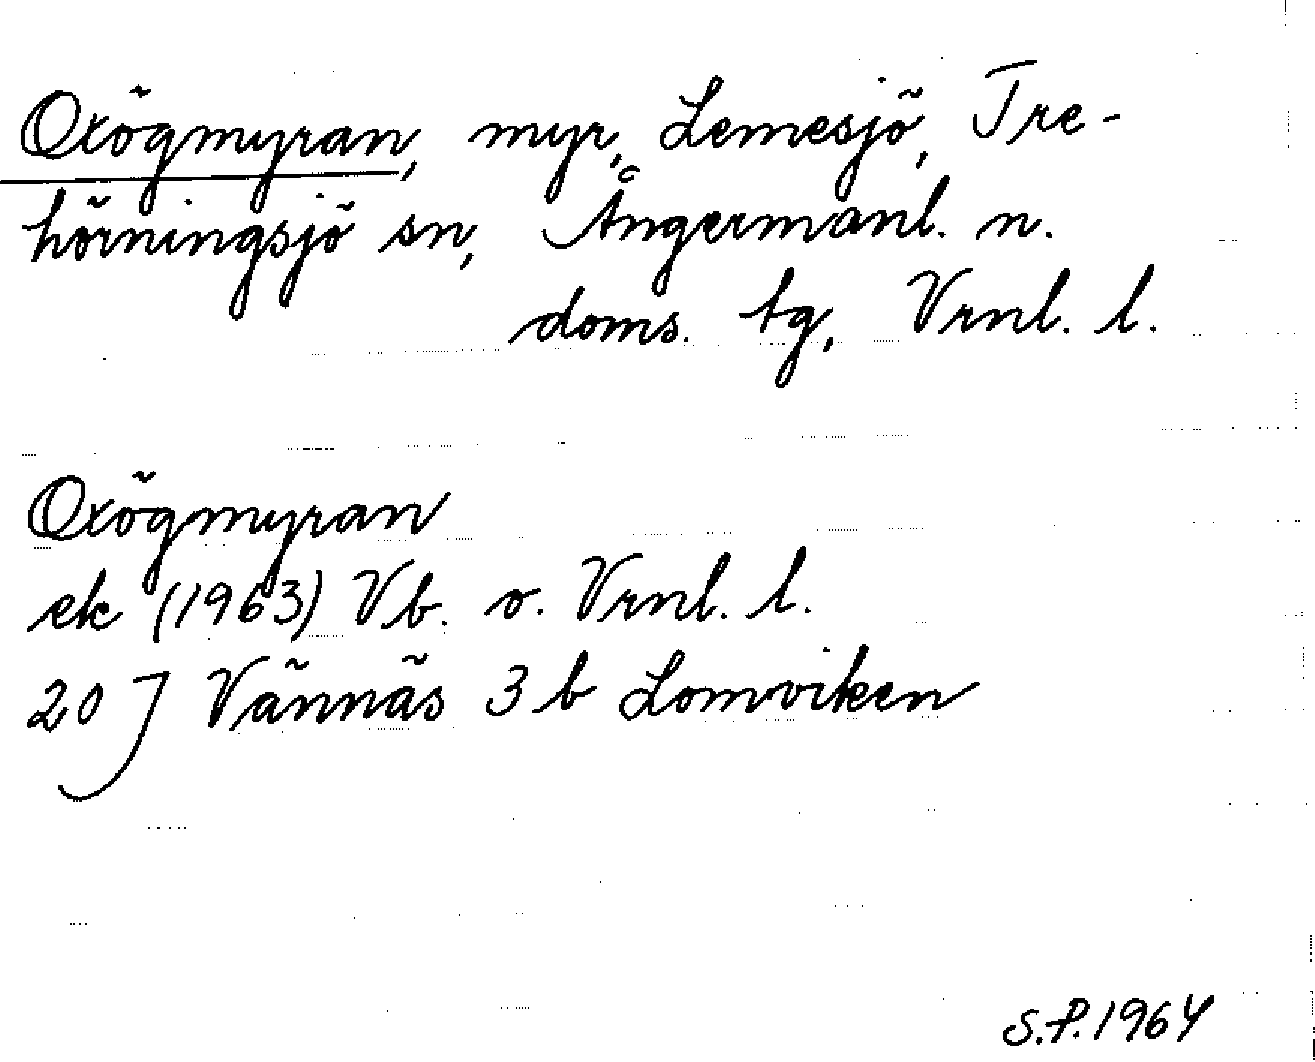 Oxögmyran, myr, Lemesjö, Tre-
hörningsjö sn, Ångermanl. n.
doms. tg, Vrnl. l.
Oxögmyran
ek (1963) Vb. o. Vrnl. l.
20 J Vännäs 3 b Lomviken
S.P. 1964